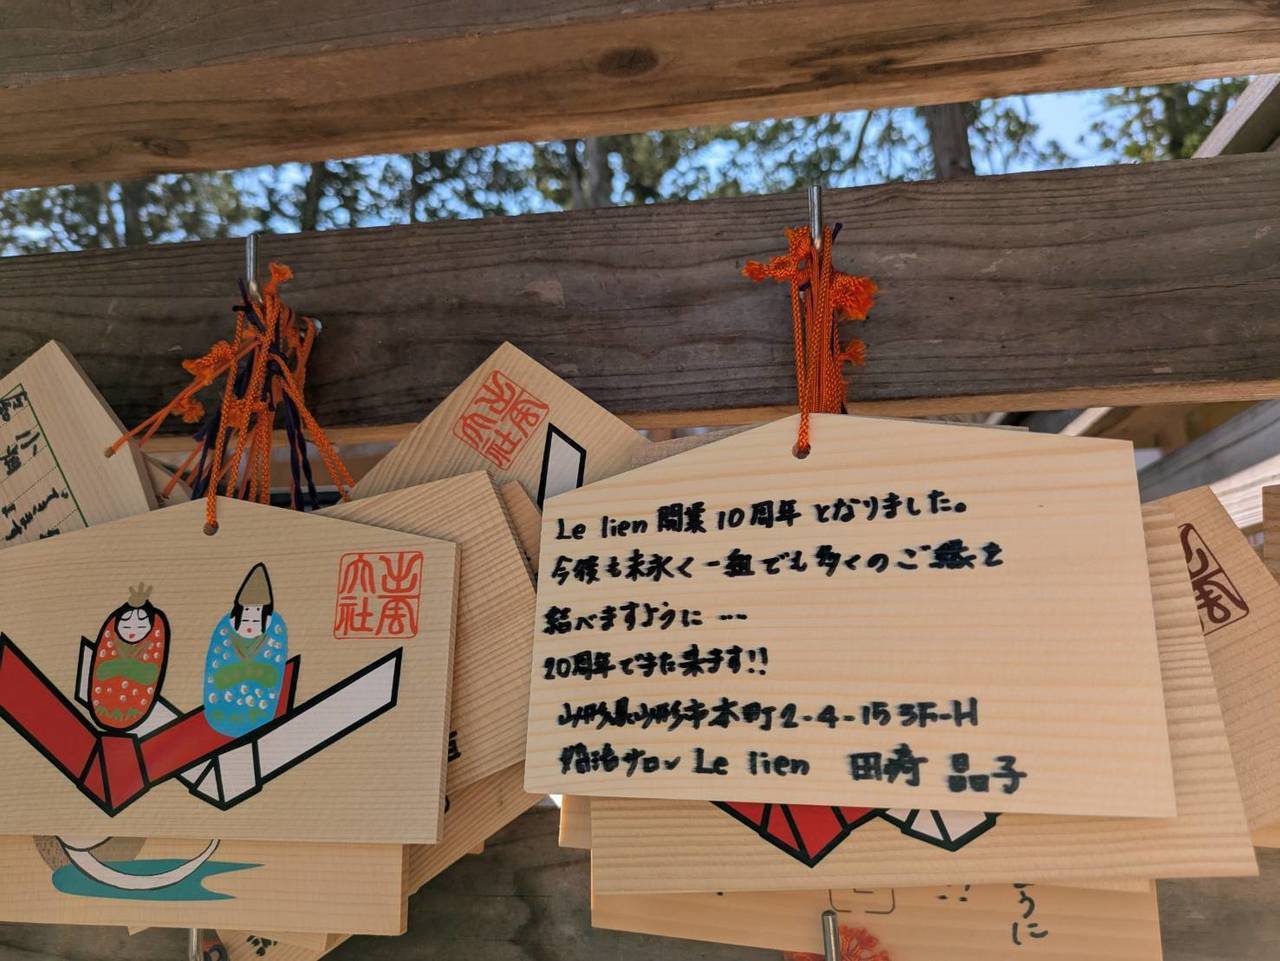 Le lien 開業10周年となりました。
今後も末永く一組でも多くのご縁を
結べますように…
20周年でまた来ます!!
山形県山形市本町2-4-15 3F-H
婚活サロン Le lien 田崎 晶子
出雲
大社
うに